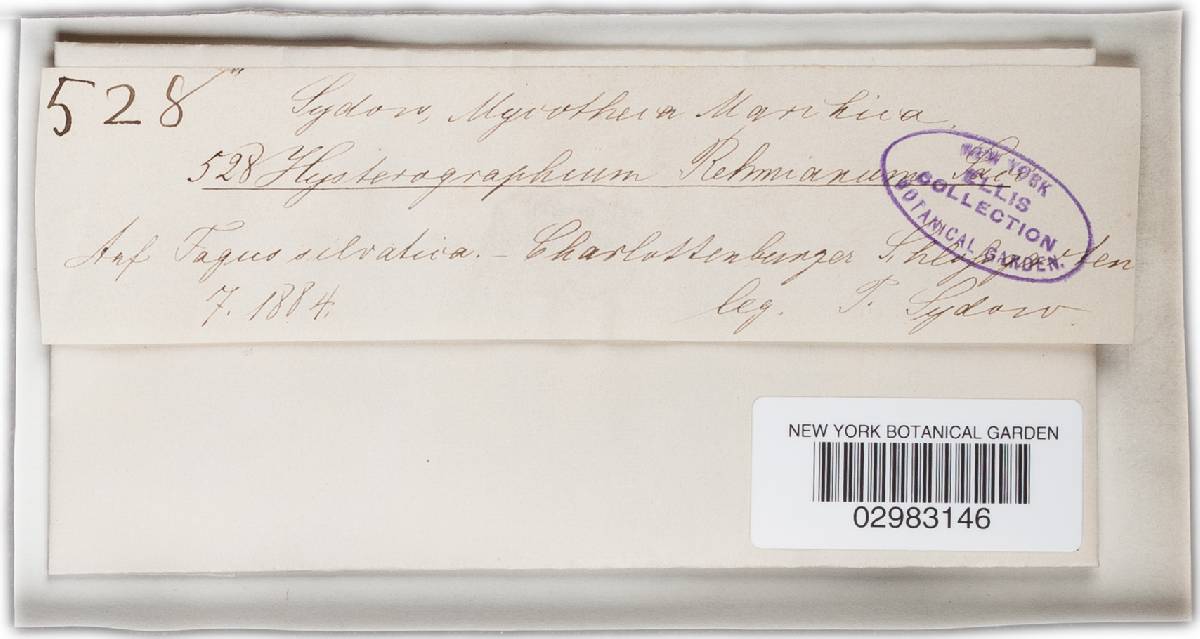 528
Sydow, Mycotheca Marchica,
528 Hysterographium Rehmianum Sacc.
Auf Fagus silvatica. - Charlottenburger Schloßgarten
7. 1884. leg. P. Sydow.
NEW YORK
ELLIS
COLLECTION
BOTANICAL GARDEN.
NEW YORK BOTANICAL GARDEN
02983146